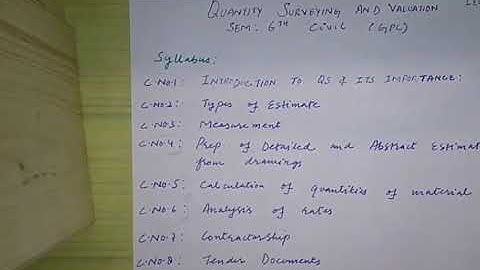 QUANTITY SURVEYING AND VALUATION
SEM. 6TH CIVIL (GPC)
Syllabus:
C.NO.1: INTRODUCTION TO QS & ITS IMPORTANCE:
C.NO.2: Types of Estimate
C.NO.3: Measurement
C.NO.4: Prep of Detailed and Abstract Estimat
from drawings
C.NO.5: Calculation of quantities of material
C.NO.6: Analysis of rates
C.NO.7: Contractorship
C.NO.8: Tender Documents